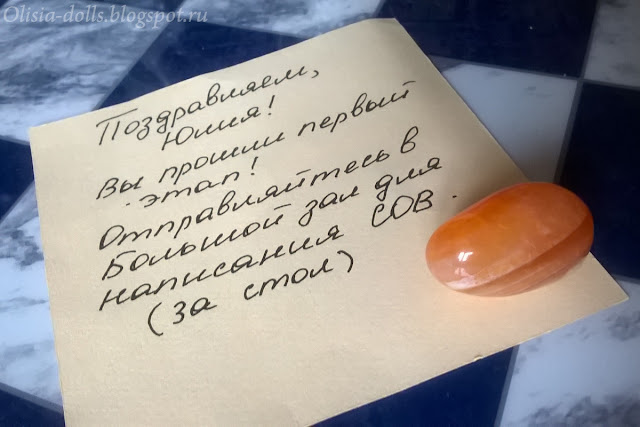 Olisia-dolls.blogspot.ru
Поздравляем,
Юлия!
Вы прошли первый
этап!
Отправляйтесь в
Большой зал для
написания СОВ.
(за стол)